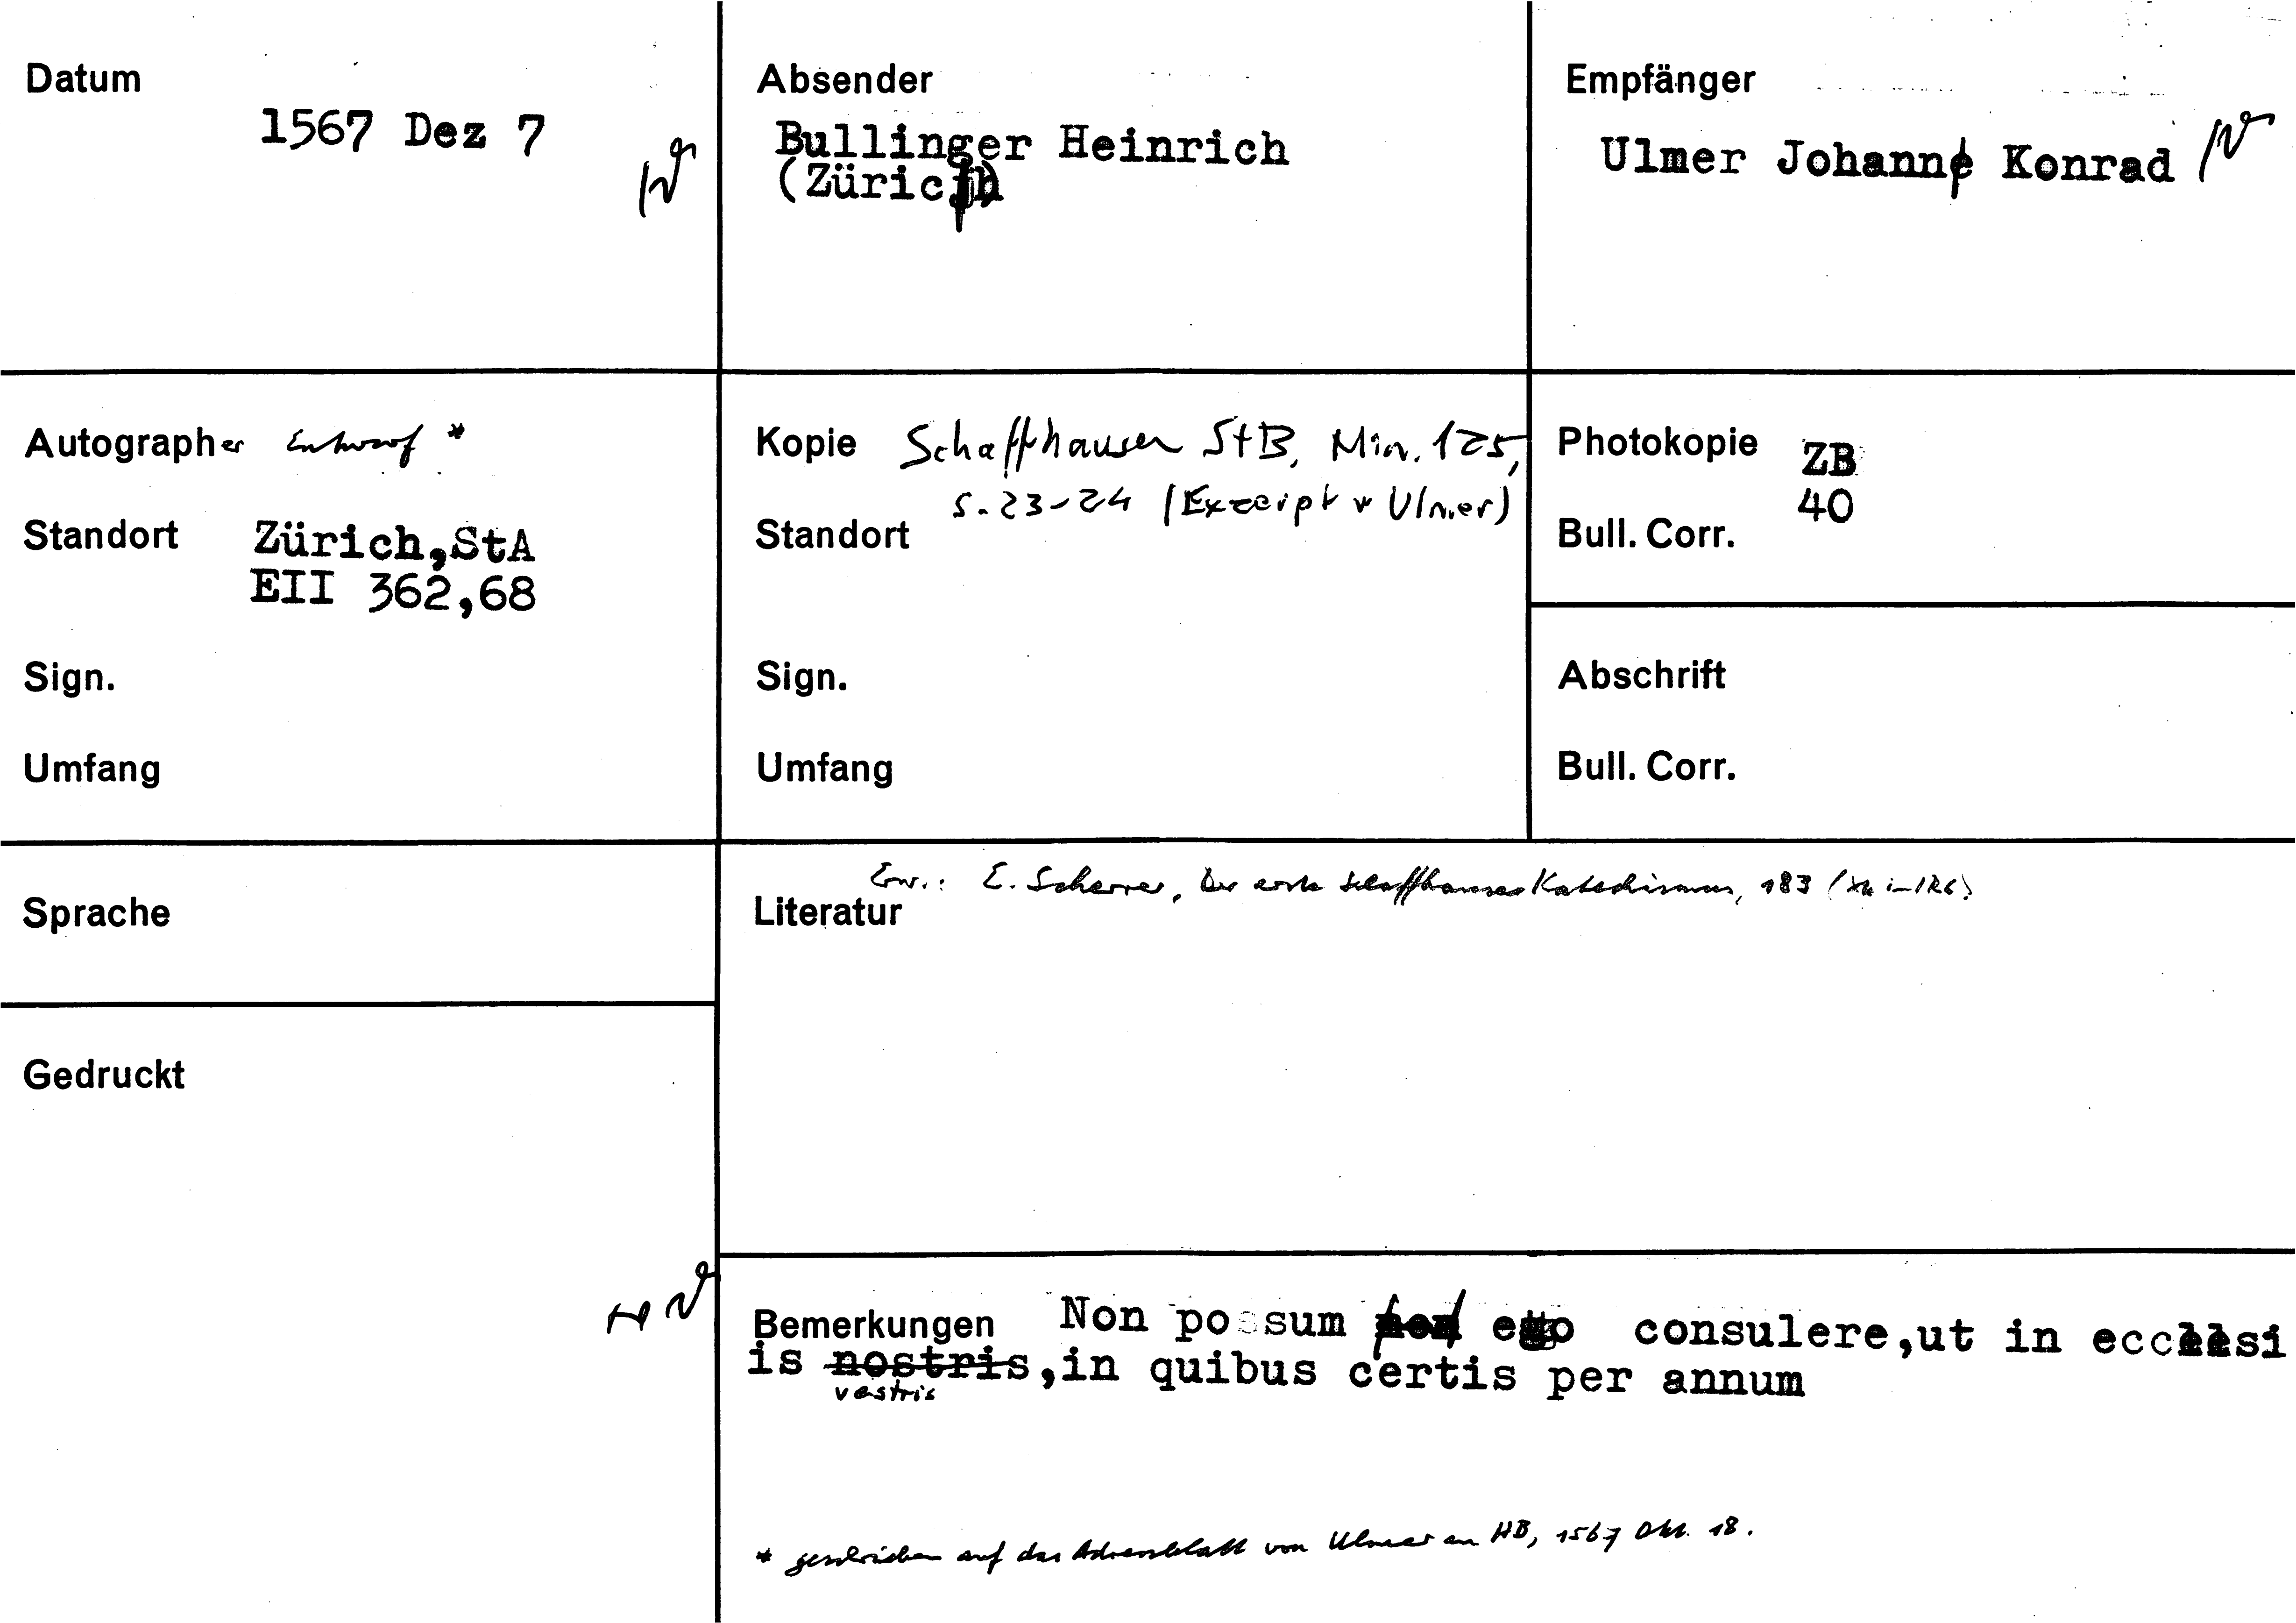 Datum
1567 Dez 7
Absender
Bullinger Heinrich
(Zürich)
Empfänger
Ulmer Johann Konrad
Autographer Entwurf *
Standort Zürich,StA
EII 362,68
Sign.
Umfang
Kopie Schaffhausen StB, Min. 125,
S. 23-24 (Exzerpt v Ulmer)
Standort
Sign.
Umfang
Photokopie ZB
40
Bull. Corr.
Abschrift
Bull. Corr.
Sprache
Erw.: E. Scherrer, Der erste Schaffhauser Katechismus, 183
Literatur
Gedruckt
Bemerkungen Non possum ego consulere,ut in ecclesi
is nostris,in quibus certis per annum
vestris
* geschrieben auf das Adressblatt von Ulmer an HB, 1567 Okt. 18.